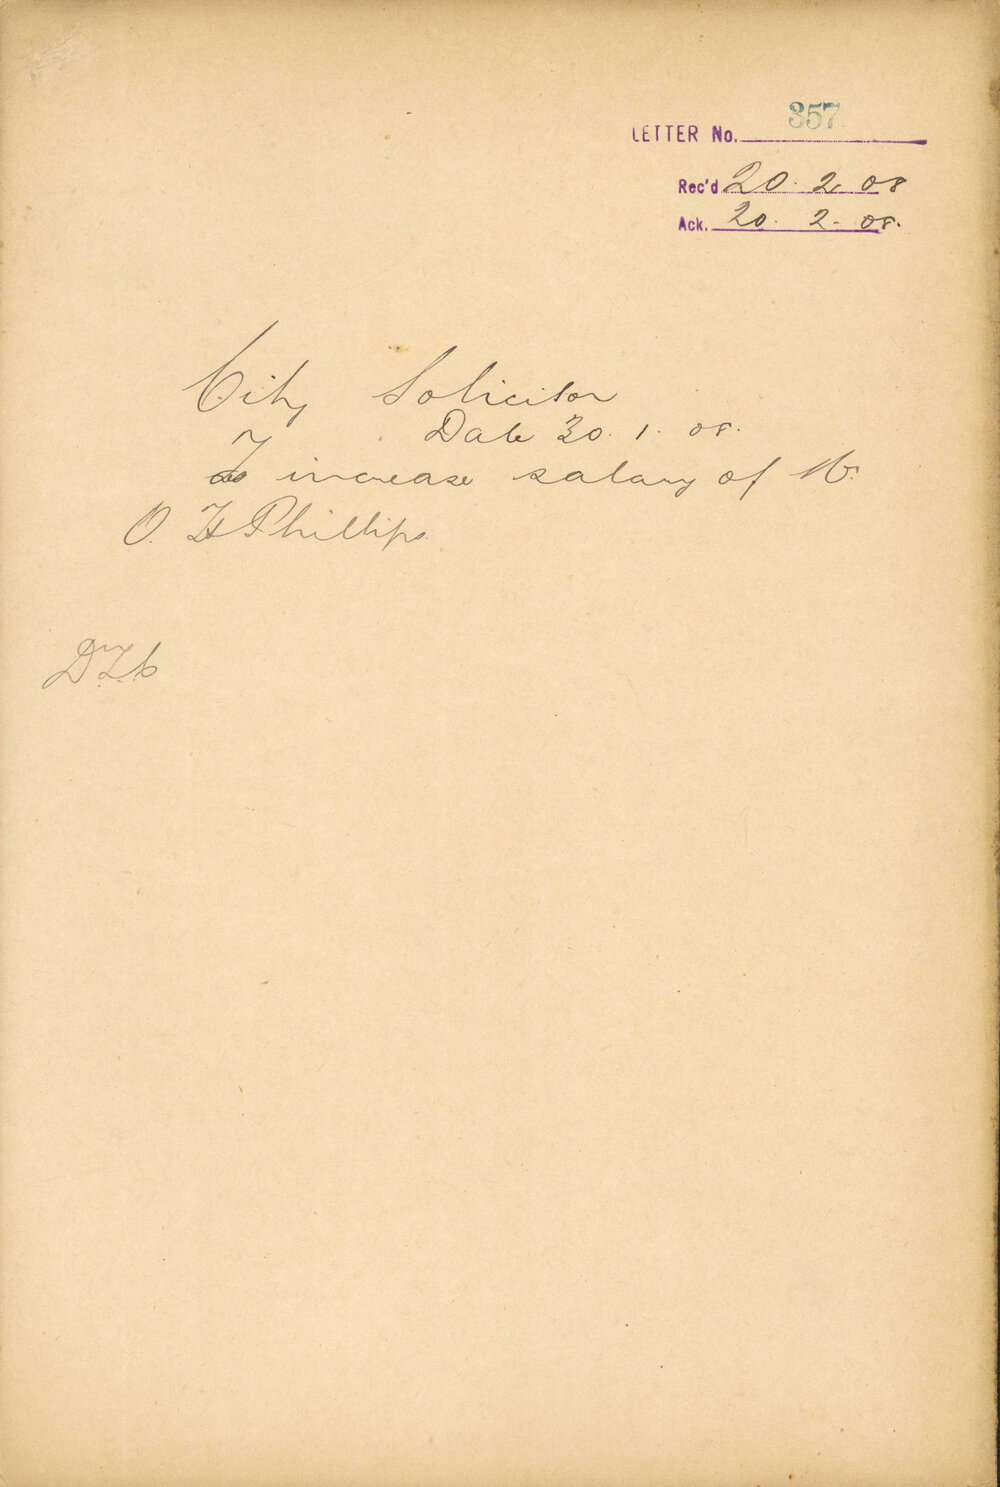 LETTER No. 357
Rec'd 20. 2. 08
Ack. 20. 2. 08.
City Solicitor
Date 30. 1. 08.
increase salary of Mr.
O. H Phillips